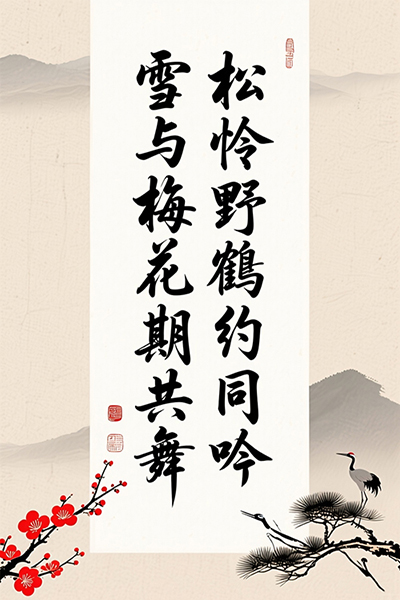 松怜野鹤约同吟
雪与梅花期共舞